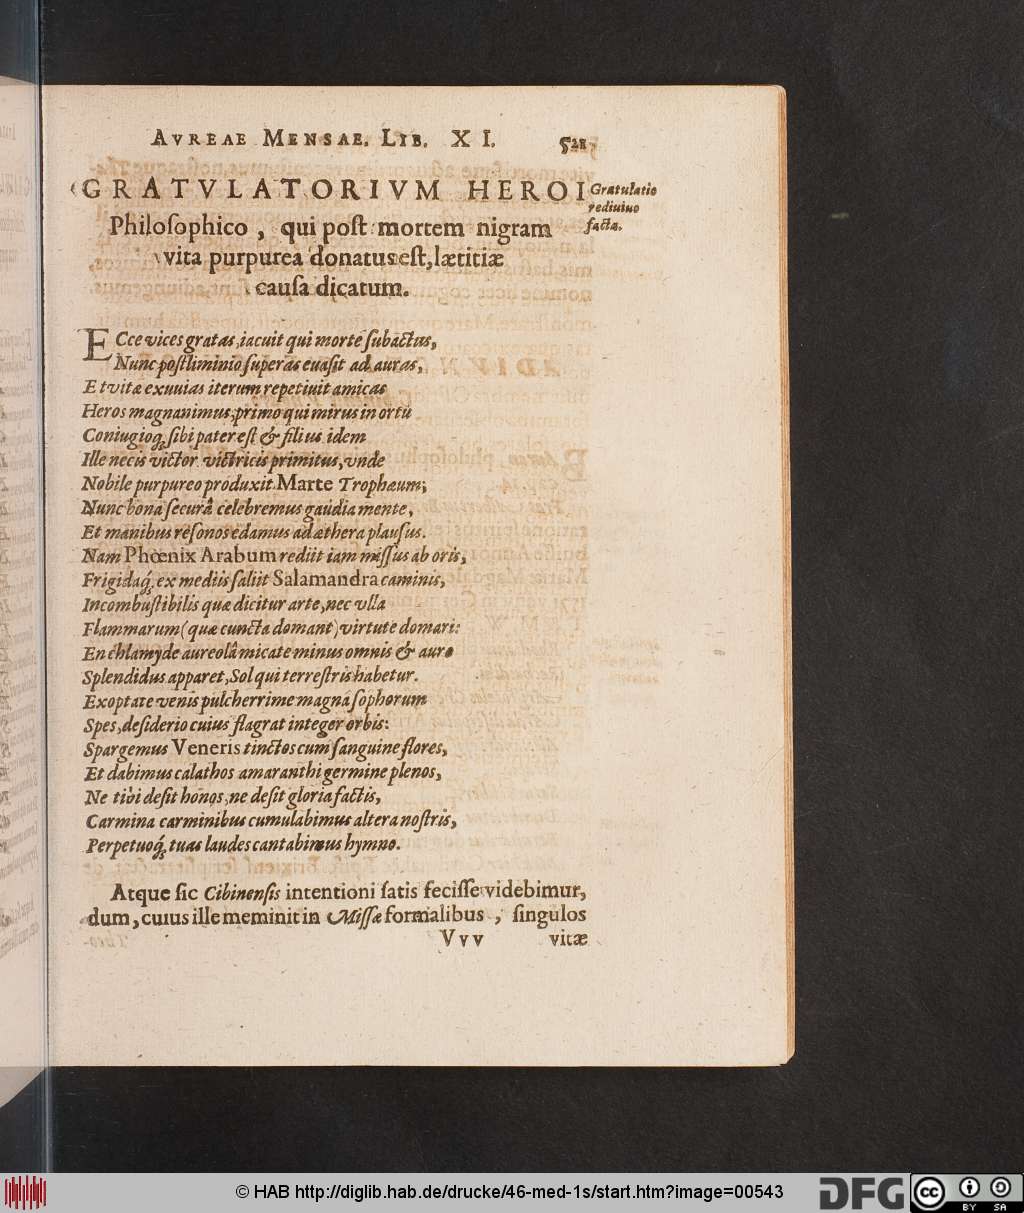 AVREAE MENSAE. LIB. XI. 521
GRATVLATORIVM HEROI
Gratulatio
rediuiuo
facta.
Philoſophico, qui poſt mortem nigram
vita purpurea donatus eſt, lætitiæ
cauſa dicatum.
ECce vices gratas, iacuit qui morte ſubactus,
Nunc poſtliminio ſuperas euaſit ad auras,
Et vitæ exuuias iterum repetiuit amicas
Heros magnanimus, primo qui mirus in ortu
Coniugioq́; ſibi pater eſt & filius idem
Ille necis victor victricis primitus, vnde
Nobile purpureo produxit Marte Trophæum;
Nunc bona ſecurâ celebremus gaudia mente,
Et manibus reſonos edamus ad æthera plauſus.
Nam Phœnix Arabum rediit iam miſſus ab oris,
Frigidaq́; ex mediis ſaliit Salamandra caminis,
Incombuſtibilis quæ dicitur arte, nec vlla
Flammarum (quæ cuncta domant) virtute domari:
En chlamyde aureolâ micat eminus omnis & auro
Splendidus apparet, Sol qui terreſtris habetur.
Exoptate venis pulcherrime magna ſophorum
Spes, deſiderio cuius flagrat integer orbis:
Spargemus Veneris tinctos cum ſanguine flores,
Et dabimus calathos amaranthi germine plenos,
Ne tibi deſit honos, ne deſit gloria factis,
Carmina carminibus cumulabimus altera noſtris,
Perpetuoq́; tuas laudes cantabimus hymno.
Atque ſic Cibinenſis intentioni ſatis feciſſe videbimur,
dum, cuius ille meminit in Miſſæ formalibus, ſingulos
Vvv vitæ
© HAB http://diglib.hab.de/drucke/46-med-1s/start.htm?image=00543
DFG
cc
BY SA